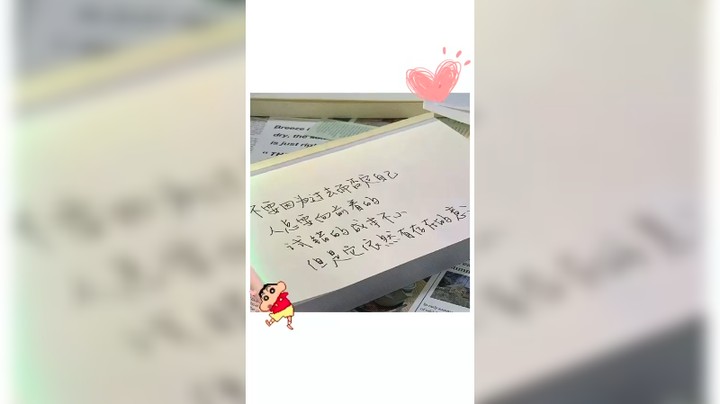 Breeze t
dry, the
is just rip
不要因为过去而否定自己
人总要向前看的
试错的成本不小
但是它依然有存在的意